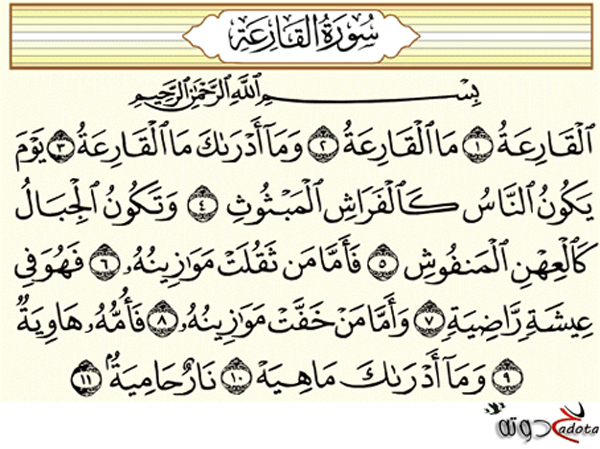 سُورَةُ الْقَارِعَةِ
بِسْمِ اللَّهِ الرَّحْمَٰنِ الرَّحِيمِ
الْقَارِعَةُ ١ مَا الْقَارِعَةُ ٢ وَمَا أَدْرَىٰكَ مَا الْقَارِعَةُ ٣ يَوْمَ
يَكُونُ النَّاسُ كَالْفَرَاشِ الْمَبْثُوثِ ٤ وَتَكُونُ الْجِبَالُ
كَالْعِهْنِ الْمَنفُوشِ ٥ فَأَمَّا مَن ثَقُلَتْ مَوَٰزِينُهُۥ ٦ فَهُوَ فِى
عِيشَةٍ رَّاضِيَةٍ ٧ وَأَمَّا مَنْ خَفَّتْ مَوَٰزِينُهُۥ ٨ فَأُمُّهُۥ هَاوِيَةٌ
٩ وَمَا أَدْرَىٰكَ مَا هِيَهْ ١٠ نَارٌ حَامِيَةٌ ١١
حدوتة
adota